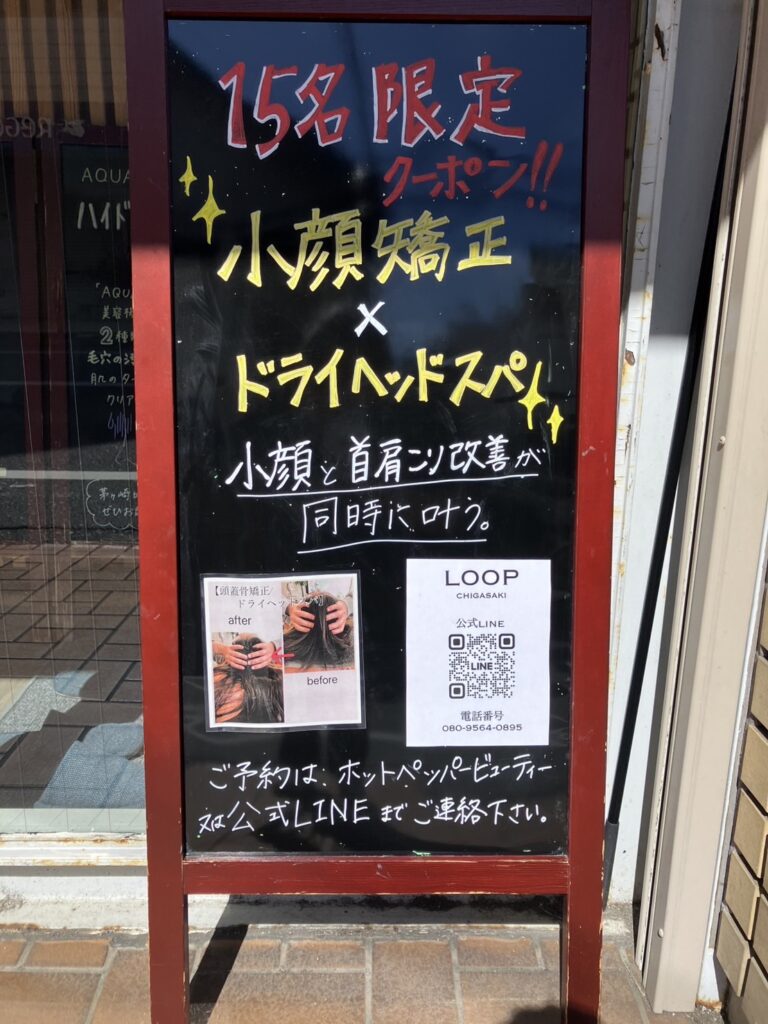 15名限定
クーポン!!
小顔矯正
×
ドライヘッドスパ
小顔と首肩こり改善が
同時に叶う。
【頭蓋骨矯正/
ドライヘッドスパ】
after
before
LOOP
CHIGASAKI
公式LINE
LINE
電話番号
080-9564-0895
ご予約は、ホットペッパービューティー
又は公式LINEまでご連絡下さい。
AQUA
ハイド
「AQU
美容
2種
毛穴の
肌のタ
クリア
茅ヶ崎
ぜひお